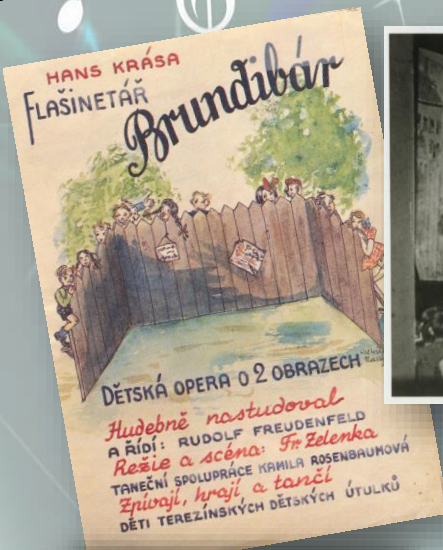 HANS KRÁSA
FLAŠINETÁŘ
Brundibár
DĚTSKÁ OPERA O 2 OBRAZECH
Hudebně nastudoval
A ŘÍDÍ: RUDOLF FREUDENFELD
Režie a scéna: Fr. Zelenka
TANEČNÍ SPOLUPRÁCE KAMILA ROSENBAUMOVÁ
Zpívají, hrají a tančí
DĚTI TEREZÍNSKÝCH DĚTSKÝCH ÚTULKŮ